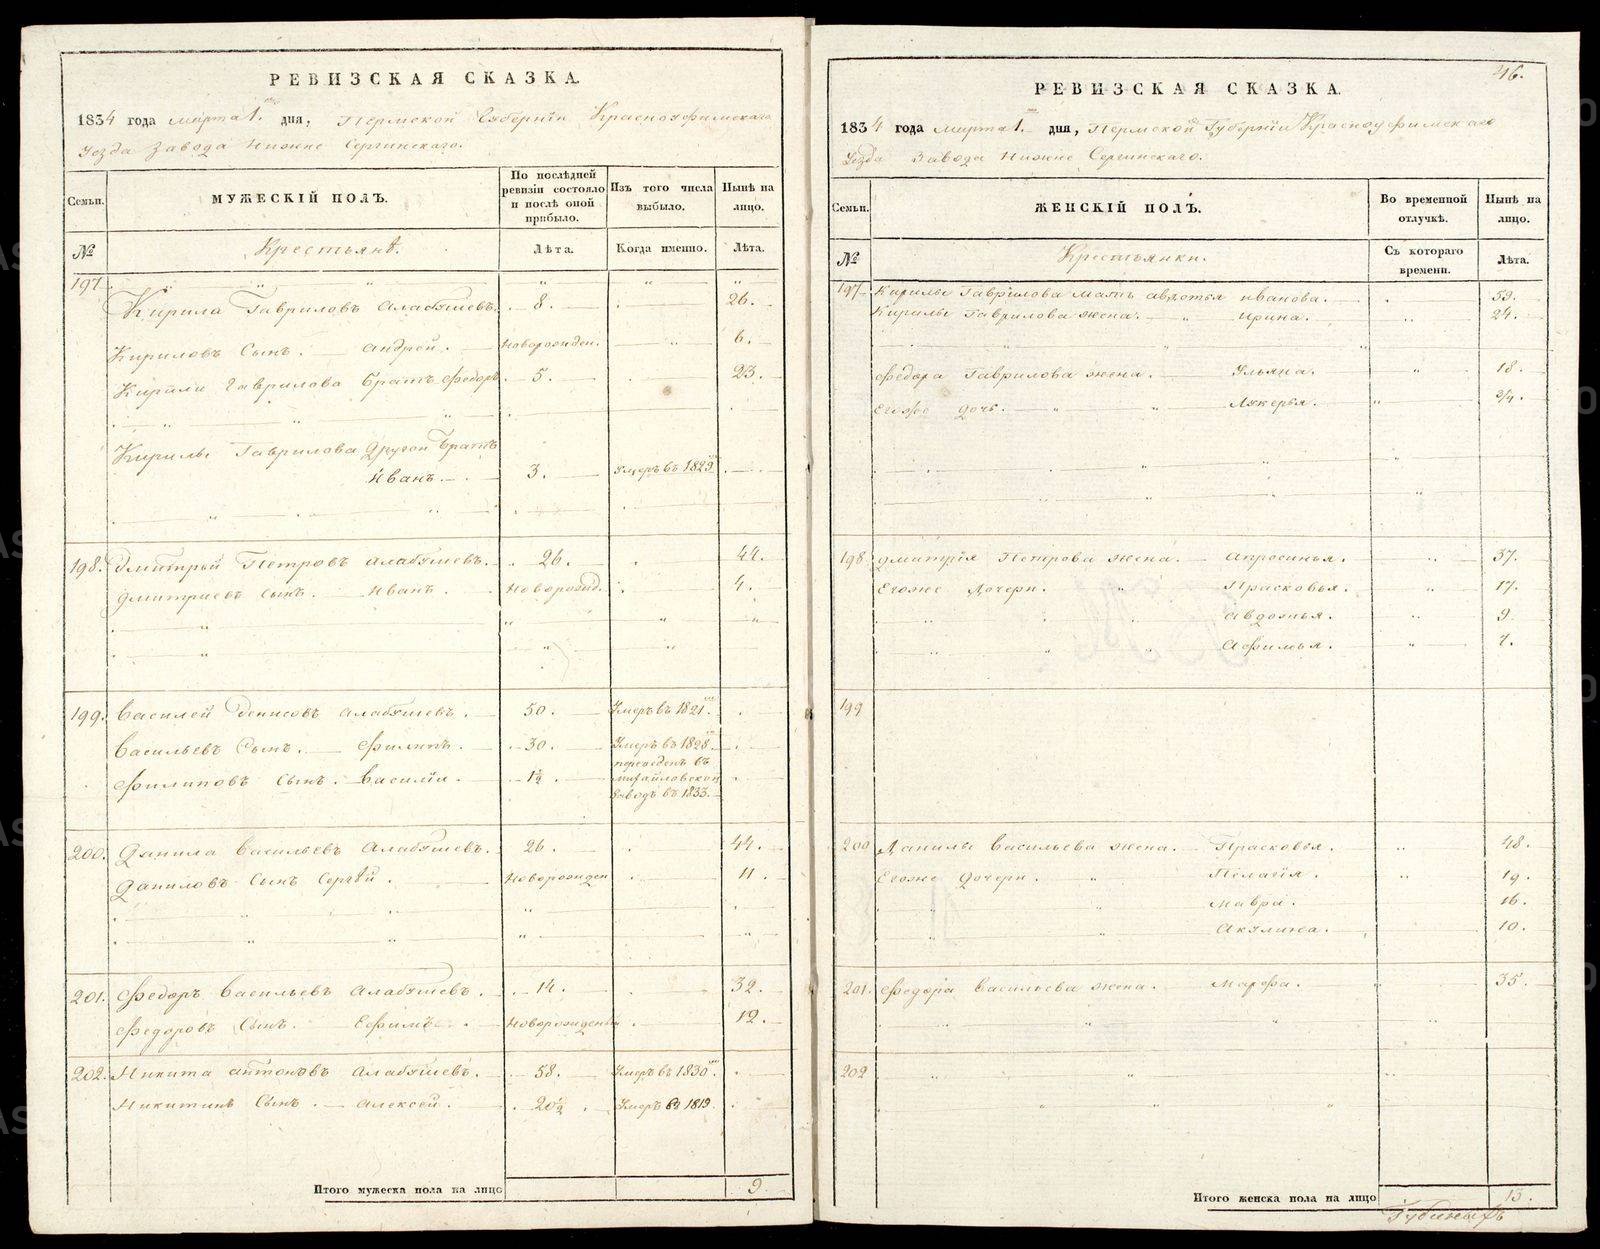 РЕВИЗСКАЯ СКАЗКА.
1834 года марта 1. дня, Пермской Губерніи Красноуфимскаго
Уезда Завода Нижне Сергинскаго.
Семьи. МУЖЕСКІЙ ПОЛЪ. По послѣдней ревизіи состояло и послѣ оной прибыло. Изъ того числа выбыло. Нынѣ на лицо.
№ Крестьянѣ. Лѣта. Когда именно. Лѣта.
197.
Кирила Гавриловъ Алабушевъ. 8. 26.
Кириловъ Сынъ. Андрей. новорожден. 6.
Кирилы Гаврилова Братъ Федоръ 5. 23.
Кирилы Гаврилова Другой Братъ
Иванъ. 3. Умеръ въ 1829
198. Дмитрий Петровъ Алабушевъ. 26. 44.
Дмитриевъ Сынъ. Иванъ. Новорожд. 4.
199. Василей Денисовъ Алабушевъ. 50. Умеръ въ 1821.
Васильевъ Сынъ. Филипъ. 30. Умеръ въ 1828
Филиповъ Сынъ. Василии. 1½. переведенъ въ
Михайловской
Заводъ въ 1833.
200. Данила Васильевъ Алабушевъ. 26. 44.
Даниловъ Сынъ Сергѣй. Новорожден 11.
201. Федоръ Васильевъ Алабушевъ. 14. 32.
Федоровъ Сынъ. Ефимъ. Новорожденъ 12.
202. Никита Антоновъ Алабушевъ. 58. Умеръ въ 1830
Никитинъ Сынъ. Алексей. 20½. Умеръ въ 1819
Итого мужеска пола на лицо 9.
46.
РЕВИЗСКАЯ СКАЗКА.
1834 года марта 1. дня, Пермской Губерніи Красноуфимскаго
Уезда Завода Нижне Сергинскаго.
Семьи. ЖЕНСКІЙ ПОЛЪ. Во временной отлучкѣ. Нынѣ на лицо.
№ Крестьянки. Съ котораго времени. Лѣта.
197. Кирилы Гаврилова мать Авдотья Иванова. 59.
Кирилы Гаврилова жена. Ирина. 24.
Федора Гаврилова жена. Ульяна. 18.
Егоже дочь. Лукерья. 3/4.
198. Дмитрія Петрова жена. Апросинья. 37.
Егоже Дочери. Прасковья. 17.
Авдотья. 9.
Афимья. 7.
199
200 Данилы Васильева жена. Прасковья. 48.
Егоже Дочери. Пелагія. 19.
Мавра. 16.
Акулина. 10.
201. Федора Васильева жена. Марфа. 35.
202
Итого женска пола на лицо 13.